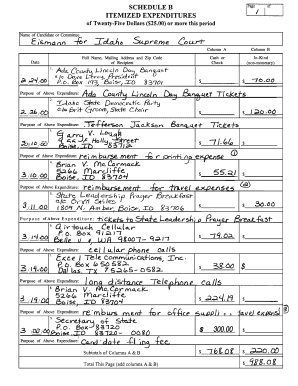 SCHEDULE B
ITEMIZED EXPENDITURES
of Twenty-Five Dollars ($25.00) or more this period
Page 1 of
Name of Candidate or Committee:
Eismann for Idaho Supreme Court
Column A Column B
Date Full Name, Mailing Address and Zip Code of Recipient Cash or Check In-Kind (non-monetary)
Ada County Lincoln Day Banquet
President
2.24.00 Boise, ID $ $ 70.00
Purpose of Above Expenditure: Ada County Lincoln Day Banquet Tickets
Idaho State Democratic Party
2.26.00 State Chair $ $ 120.00
Purpose of Above Expenditure: Jefferson Jackson Banquet Tickets
Gary V.
Street
3.10.00 Boise, ID $ 71.66 $
Purpose of Above Expenditure: reimbursement for printing expense
Brian V. McCormack
5266 Marcliffe
3.10.00 Boise, ID 83704 $ 55.21 $
Purpose of Above Expenditure: reimbursement for travel expenses
State Leadership Prayer Breakfast
c/o Oryll Skiles
3.11.00 1809 N. Amber, Boise, ID 83706 $ $ 30.00
Purpose of Above Expenditure: tickets to State Leadership Prayer Breakfast
Airtouch Cellular
P.O. Box 91217
3.14.00 WA 98007-9217 $ 79.02 $
Purpose of Above Expenditure: cellular phone calls
Excel Telecommunications, Inc.
P.O. Box 650582
3.19.00 Dallas, TX 75265-0582 $ 38.00 $
Purpose of Above Expenditure: long distance telephone calls
Brian V. McCormack
5266 Marcliffe
3.19.00 Boise, ID 83704 $ 224.19 $
Purpose of Above Expenditure: reimbursement for office travel
Secretary of State
P.O. Box 83720
Boise, ID 83720-0080 $ 300.00 $
Purpose of Above Expenditure: Candidate filing fee
Subtotals of Columns A & B $ 768.08 $ 220.00
Total This Page (add columns A & B) $ 988.08